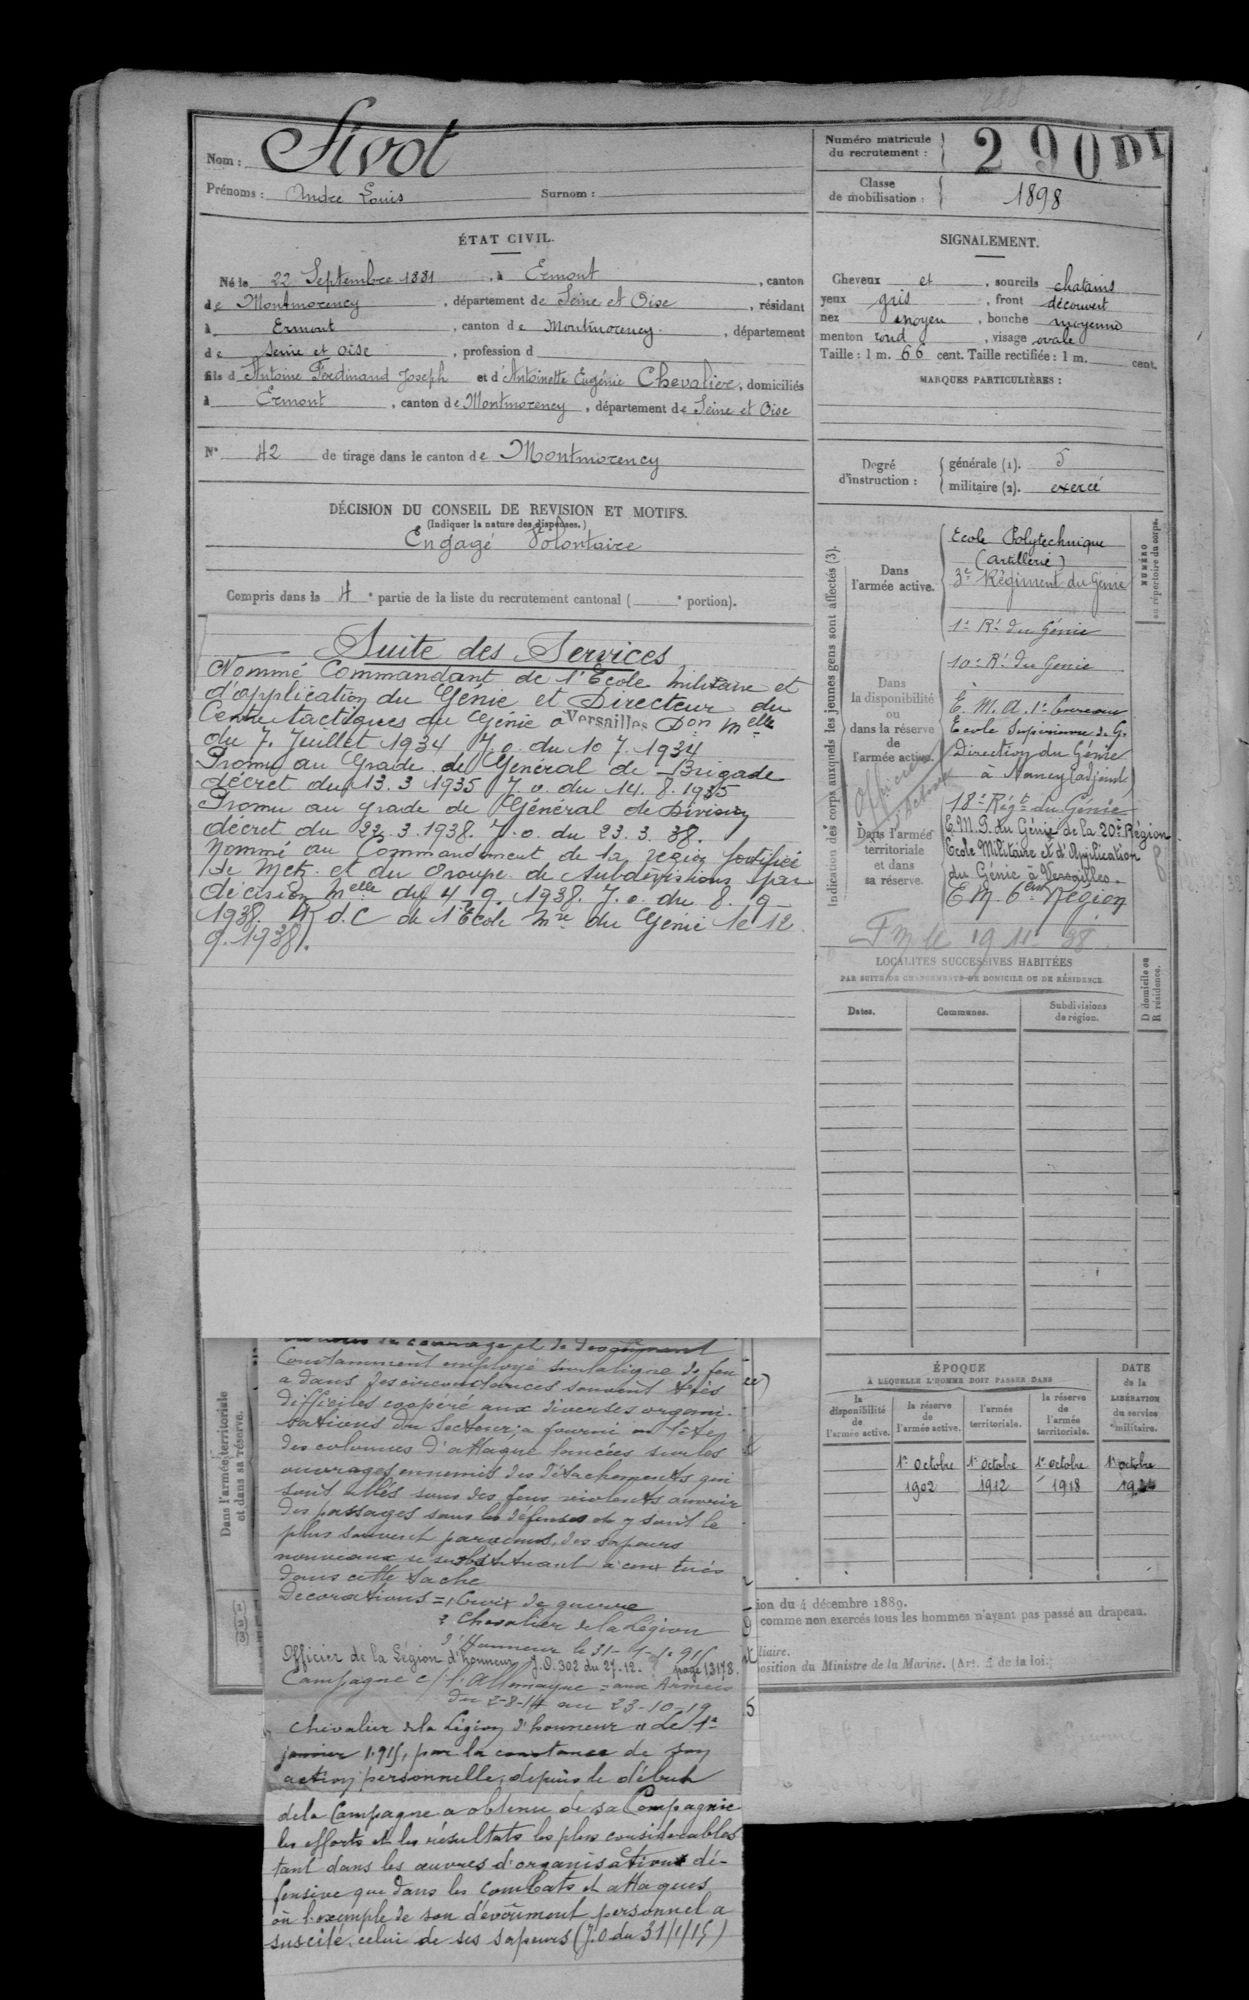 Nom : Sivot
Prénoms : André Louis Surnom :
ÉTAT CIVIL.
Né le 22 Septembre 1881, à Ermont, canton
de Montmorency, département de Seine et Oise, résidant
à Ermont, canton de Montmorency, département
de Seine et Oise, profession d
fils d'Antoine Ferdinand Joseph et d'Antoinette Eugénie Chevalier, domiciliés
à Ermont, canton de Montmorency, département de Seine et Oise
N° 42 de tirage dans le canton de Montmorency
DÉCISION DU CONSEIL DE REVISION ET MOTIFS.
(Indiquer la nature des dispenses.)
Engagé Volontaire
Compris dans la 4e partie de la liste du recrutement cantonal ( e portion).
Suite des Services
Nommé Commandant de l'École militaire et
d'application du Génie et Directeur du
Centre tactiques du Génie à Versailles Don melle
du 7. Juillet 1934 J.o. du 10 7. 1934
Promu au Grade de Général de Brigade
décret du 13.3 1935 J.o. du 14. 8. 1935
Promu au grade de Général de Division
décret du 22.3.1938. J.o. du 23.3.38.
Nommé au Commandement de la région fortifiée
de Metz et du Groupe de Subdivisions par
décision melle du 4.9.1938. J.o. du 8.9
1938. R.d.C de l'École mre du Génie le 12.
9.1938.
Numéro matricule
du recrutement : 290 DI
Classe
de mobilisation : 1898
SIGNALEMENT.
Cheveux et, sourcils chatains
yeux gris, front découvert
nez moyen, bouche moyenne
menton rond, visage ovale
Taille : 1 m. 66 cent. Taille rectifiée : 1 m. cent.
MARQUES PARTICULIÈRES :
Degré
d'instruction :
générale (1). 5
militaire (2). exercé
Indication des corps auxquels les jeunes gens sont affectés (3).
NUMÉRO
au répertoire du corps.
Dans
l'armée active.
Ecole Polytechnique
(artillerie)
3e Régiment du Génie
1er Rt du Génie
Dans
la disponibilité
ou
dans la réserve
de
l'armée active.
10e Rt du Génie
E. M. A. 1er bureau
Ecole Supérieure de G.
Direction du Génie
à Nancy (adjoint)
Dans l'armée
territoriale
et dans
sa réserve.
18e Régt du Génie
E.M.P. du Génie de la 20e Région
École Militaire et d'Application
du Génie à Versailles.
EM. 6em Région
LOCALITÉS SUCCESSIVES HABITÉES
PAR SUITE DE CHANGEMENTS DE DOMICILE OU DE RÉSIDENCE
Dates.
Communes.
Subdivisions
de région.
D domicile ou
R résidence.
ÉPOQUE
À LAQUELLE L'HOMME DOIT PASSER DANS
la
disponibilité
de
l'armée active.
la réserve
de
l'armée active.
l'armée
territoriale.
la réserve
de
l'armée
territoriale.
DATE
de la
LIBÉRATION
du service
militaire.
1er octobre 1er octobre 1er octobre 1er octobre
1902 1912 1918
Dans l'armée territoriale
et dans sa réserve.
Constamment employé sur la ligne de feu
a dans des circonstances souvent très
difficiles coopéré aux diverses organi-
sations du Secteur, a fourni en tête
des colonnes d'attaque lancées sur les
ouvrages ennemis des détachements qui
sont allés sous des feux violents ouvrir
des passages sous les défenses et y sont le
plus souvent parvenus, des sapeurs
nouveaux se substituant à ceux tués
dans cette tache
Decorations = 1 Croix de guerre
2 Chevalier de la Légion
d'Honneur le 31-1-1915
Officier de la Légion d'honneur J.O. 302 du 27-12. page 13178.
Campagne c/ l'Allemagne = aux Armées
du 2-8-14 au 23-10-19
Chevalier de la Légion d'honneur "Le 1er
janvier 1915, par la constance de son
action personnelle, depuis le début
de la Campagne a obtenu de sa Compagnie
les efforts et les résultats les plus considerables
tant dans les œuvres d'organisations dé-
fensive que dans les combats et attaques
où l'exemple de son dévoûment personnel a
suscité celui de ses sapeurs (J.O du 31/1/15)
ion du 4 décembre 1889.
comme non exercés tous les hommes n'ayant pas passé au drapeau.
liaire.
position du Ministre de la Marine. (Art. 4 de la loi.)